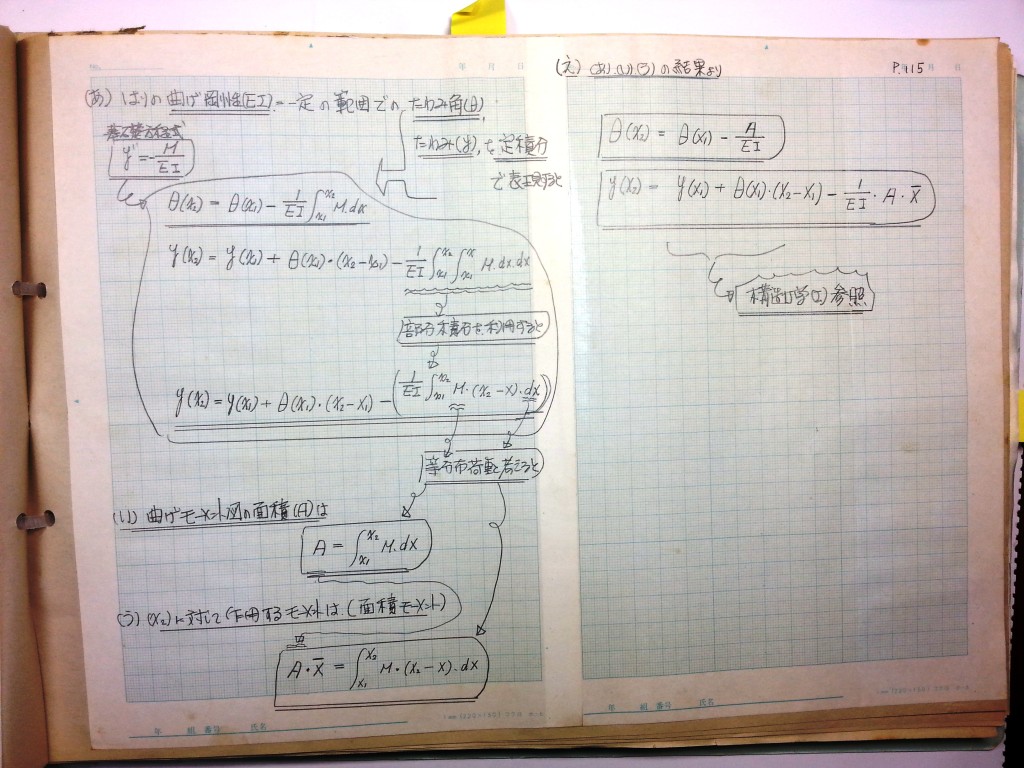 (あ) はりの曲げ剛性(EI)=一定の範囲でのたわみ角(θ),
たわみ(y),を定積分
で表現すると
y″=-M/EI
θ(x₂) = θ(x₁) - 1/EI ∫_{x₁}^{x₂} M.dx
y(x₂) = y(x₁) + θ(x₁)・(x₂-x₁) - 1/EI ∫_{x₁}^{x₂} ∫_{x₁}^{x} M.dx.dx
部分積分を利用すると
y(x₂) = y(x₁) + θ(x₁)・(x₂-x₁) - (1/EI ∫_{x₁}^{x₂} M・(x₂-x).dx)
等分布荷重と考えると
(い) 曲げモーメント図の面積(A)は
A = ∫_{x₁}^{x₂} M.dx
(う) (x₂)に対して作用するモーメントは(面積モーメント)
A・x̄ = ∫_{x₁}^{x₂} M・(x₂-x).dx
年 組 番号 氏名
(え) (あ).(い).(う)の結果より
P.115
年 月 日
θ(x₂) = θ(x₁) - A/EI
y(x₂) = y(x₁) + θ(x₁)・(x₂-x₁) - 1/EI・A・x̄
構造力学(I)参照
年 組 番号 氏名